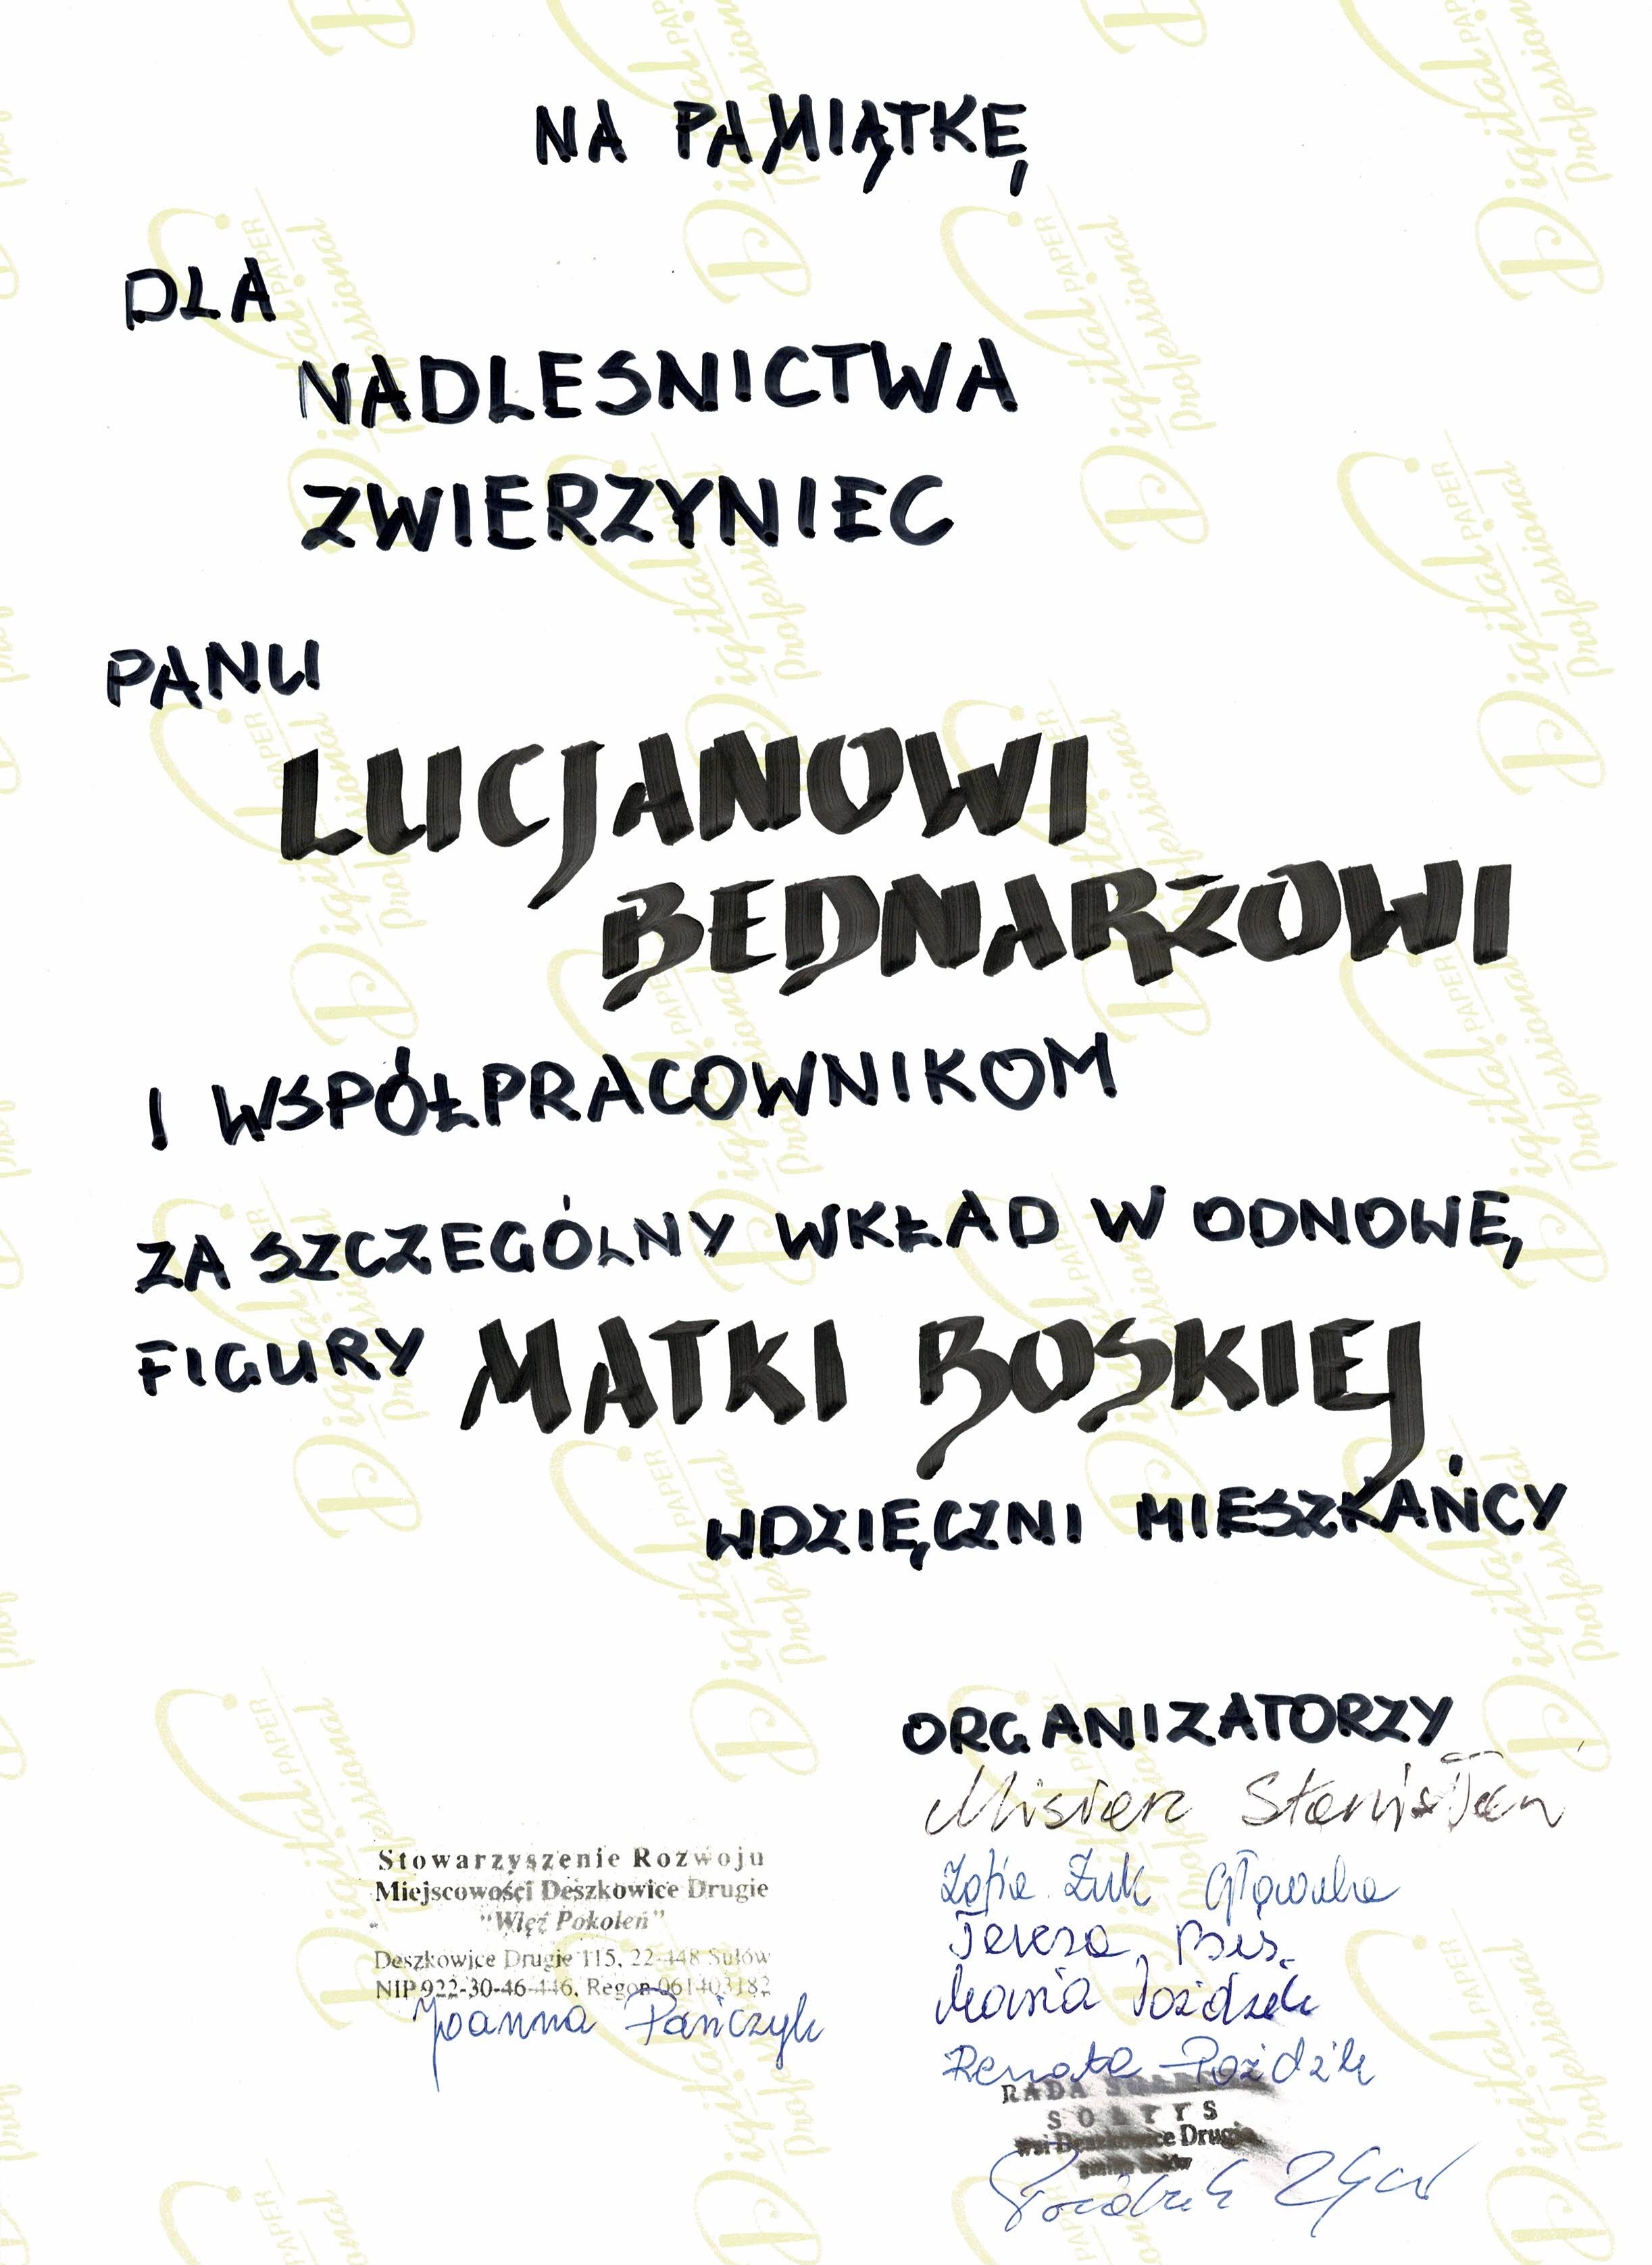 NA PAMIĄTKĘ
DLA
NADLESNICTWA
ZWIERZYNIEC
PANU
LUCJANOWI
BEDNARŻOWI
I WSPÓŁPRACOWNIKOM
ZA SZCZEGÓLNY WKŁAD W ODNOWĘ
FIGURY MATKI BOSKIEJ
WDZIĘCZNI MIESZKAŃCY
ORGANIZATORZY
Misiarz Stanisław
Zofia Żuk
Teresa
Maria
Renata
Stowarzyszenie Rozwoju
Miejscowości Deszkowice Drugie
"Więź Pokoleń"
Deszkowice Drugie 115, 22-448 Sułów
NIP 922-30-46-446, Regon 061403182
Joanna Pańczyk
RADA
SOŁTYS
wsi Deszkowice Drugie
gmina Sułów
Digital PAPER
professional